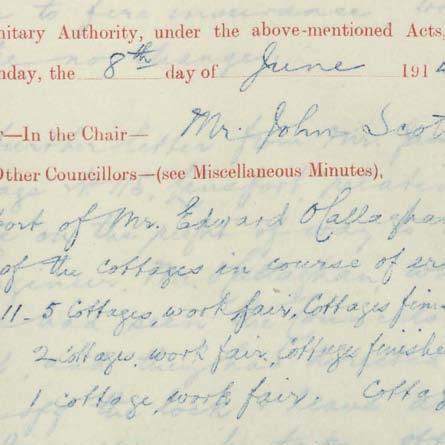 nitary Authority, under the above-mentioned Acts,
nday, the 8th day of June 1914
r—In the Chair— Mr. John Scot
Other Councillors—(see Miscellaneous Minutes),
port of Mr. Edward O'Callaghan
of the cottages in course of er
11 - 5 Cottages, work fair, Cottages fin
2 Cottages, work fair, Cottages finishe
1 cottage, work fair. Cottag